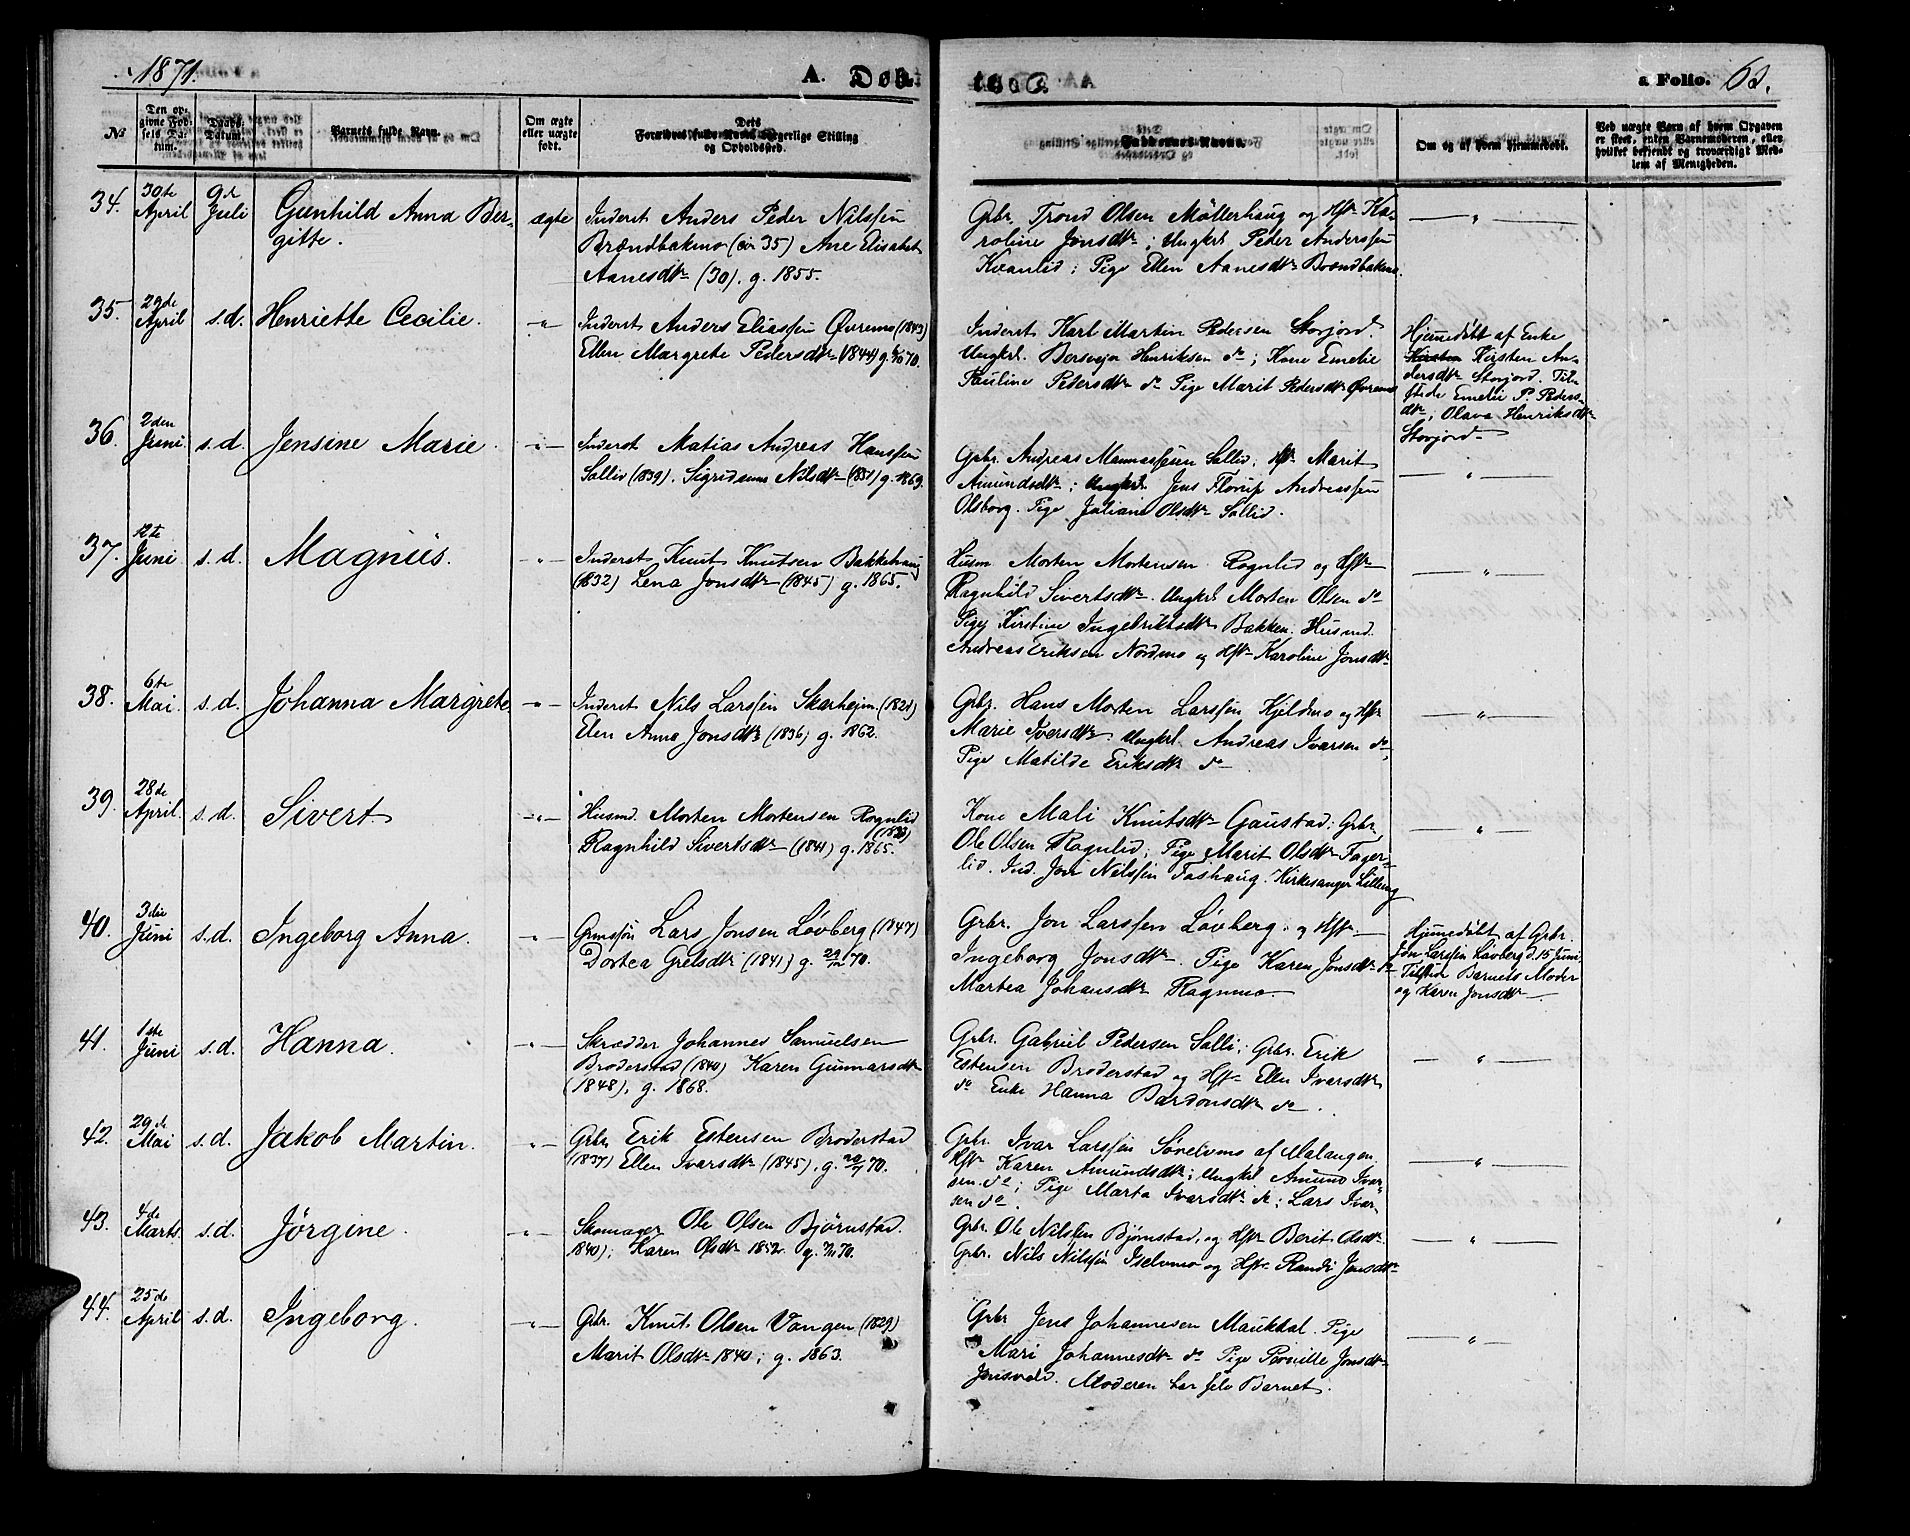 1871.
A. Døb
a Folio. 63.
No
Den opgivne Fødsels Datum.
Daabs-Datum.
Barnets fulde Navn.
Om ægte eller uægte født.
Dets Forældres fulde Navn, borgerlige Stilling og Opholdssted.
Faddernes Navne.
Om og af hvem hjemmedøbt.
Ved uægte Barn af hvem Opgaven er skeet, enten Barnemoderen, eller hvilket bekjendt og troværdigt Medlem af Menigheden.
34. 30te April 9de Juli Gunhild Anna Ber-
gitte.
ægte
Inderst Anders Peder Nilssen
Brændbakmo (cir 35) Ane Elisabet
Aanesdtr (30). g. 1855.
Grbr. Trond Olsen Møllerhaug og Hstr Ka-
roline Jonsdtr; Ungkrl Peder Anderssen
Kvanlid; Pige Ellen Aanesdtr Brændbakmo.
— " —
35. 29de April s.d. Henriette Cecilie.
— " —
Inderst Anders Eliassen Øvremo (1843)
Ellen Margrete Pedersdtr (1844) g. 70.
Inderst Karl Martin Pedersen Storjord.
Ungkrl. Bersvejn Henriksen do; Kone Emelie
Pauline Pedersdtr do Pige Marit Pedersdtr Øvremo
Hjemmedøbt af Enke
Kirsten Kirsten An-
dersdtr Storjord. Til-
stede Emelie P. Peders-
dtr; Olava Henriksdtr
Storjord.
36. 2den Juni s.d. Jensine Marie.
— " —
Inderst Matias Andreas Hanssen
Sollid (1839). Nilsdtr (1851) g. 1869.
Grbr. Andreas Mannassesen Sollid; Hstr Marit
Amundsdtr; Ungkrl. Jens Florup Andreassen
Olsborg. Pige Juliane Olsdtr Sollid.
— " —
37. 12te Juni s.d. Magnus.
— " —
Inderst Knut Knutsen Bakkehaug
(1832) Lena Jonsdtr (1845) g. 1865.
Husm Morten Mortensen Rognlid og Hstr
Ragnhild Sivertsdtr. Ungkrl Morten Olsen do
Pige Kirstine Ingebriktsdtr Bakken. Husmd.
Andreas Eriksen Nordmo og Hstr Karoline Jonsdtr
— " —
38. 6te Mai s.d. Johanna Margrete.
— " —
Inderst Nils Larssen Skarhejm (1821)
Elen Anna Jonsdtr (1836) g. 1862.
Grbr. Hans Morten Larssen Kjeldmo og Hstr
Marie Iversdtr. Ungkrl. Andreas Ivarsen do,
Pige Matilde Eriksdtr do
— " —
39. 28de April. s.d. Sivert
— " —
Husmd. Morten Mortensen Rognlid
(1833)
Ragnhild Sivertsdtr (1841) g. 1865.
Kone Mali Knutsdtr Gaustad; Grbr.
Ole Olsen Rognlid; Pige Marit Olsdtr Fager-
lid. Ind. Jon Nilssen Foshaug. Kirkesanger Lilleng
— " —
40. 3die Juni s.d. Ingeborg Anna.
— " —
Grmssøn Lars Jonsen Løvberg (1847)
Dortea Grelsdtr (1841) g. 29/12 70.
Grbr. Jon Larssen Løvberg. og Hstr
Ingeborg Jonsdtr. Pige Karen Jonsdtr do
Martea Johansdtr Ragnmo.
Hjemmedøbt af Grbr.
Jon Larssen Løvberg d. 15 Juni
Tilstede Barnets Moder
og Karen Jonsdtr
41. 1ste Juni s.d. Hanna.
— " —
Skrædder Johannes Samuelsen
Broderstad (1840) Karen Gunnarsdtr
(1848), g. 1868.
Grbr. Gabriel Pedersen Solli; Grbr. Erik
Estensen Broderstad og Hstr Ellen Ivarsdtr
do Enke Hanna Bardonsdtr do.
— " —
42. 29de Mai s.d. Jakob Martin.
— " —
Grbr Erik Estensen Broderstad
(1837) Ellen Ivarsdtr (1845), g. 70.
Grbr. Ivar Larssen Sørelvmo af Malangen,
Hstr Karen Amundsdtr; Ungkrl Amund Ivar-
sen do; Pige Marta Ivarsdtr do; Lars Ivar-
sen do.
— " —
43. 4de Marts. s.d. Jørgine.
— " —
Skomager Ole Olsen Bjørnstad.
1840); Karen Olsdtr 1852. g. 70.
Grbr. Ole Nilssen Bjørnstad, og Hstr Berit Olsdtr
Grbr. Nils Nilssen Iselvmo og Hstr Randi Jonsdtr
— " —
44. 25de April s.d. Ingeborg.
— " —
Grbr. Knut Olsen Vangen (1829)
Marit Olsdtr 1840; g. 1863.
Grbr Jens Johannesen Maukdal. Pige
Mari Johannesdtr do Pige Pernille Jonsdtr
Jonsvold. Moderen bar selv Barnet.
— " —